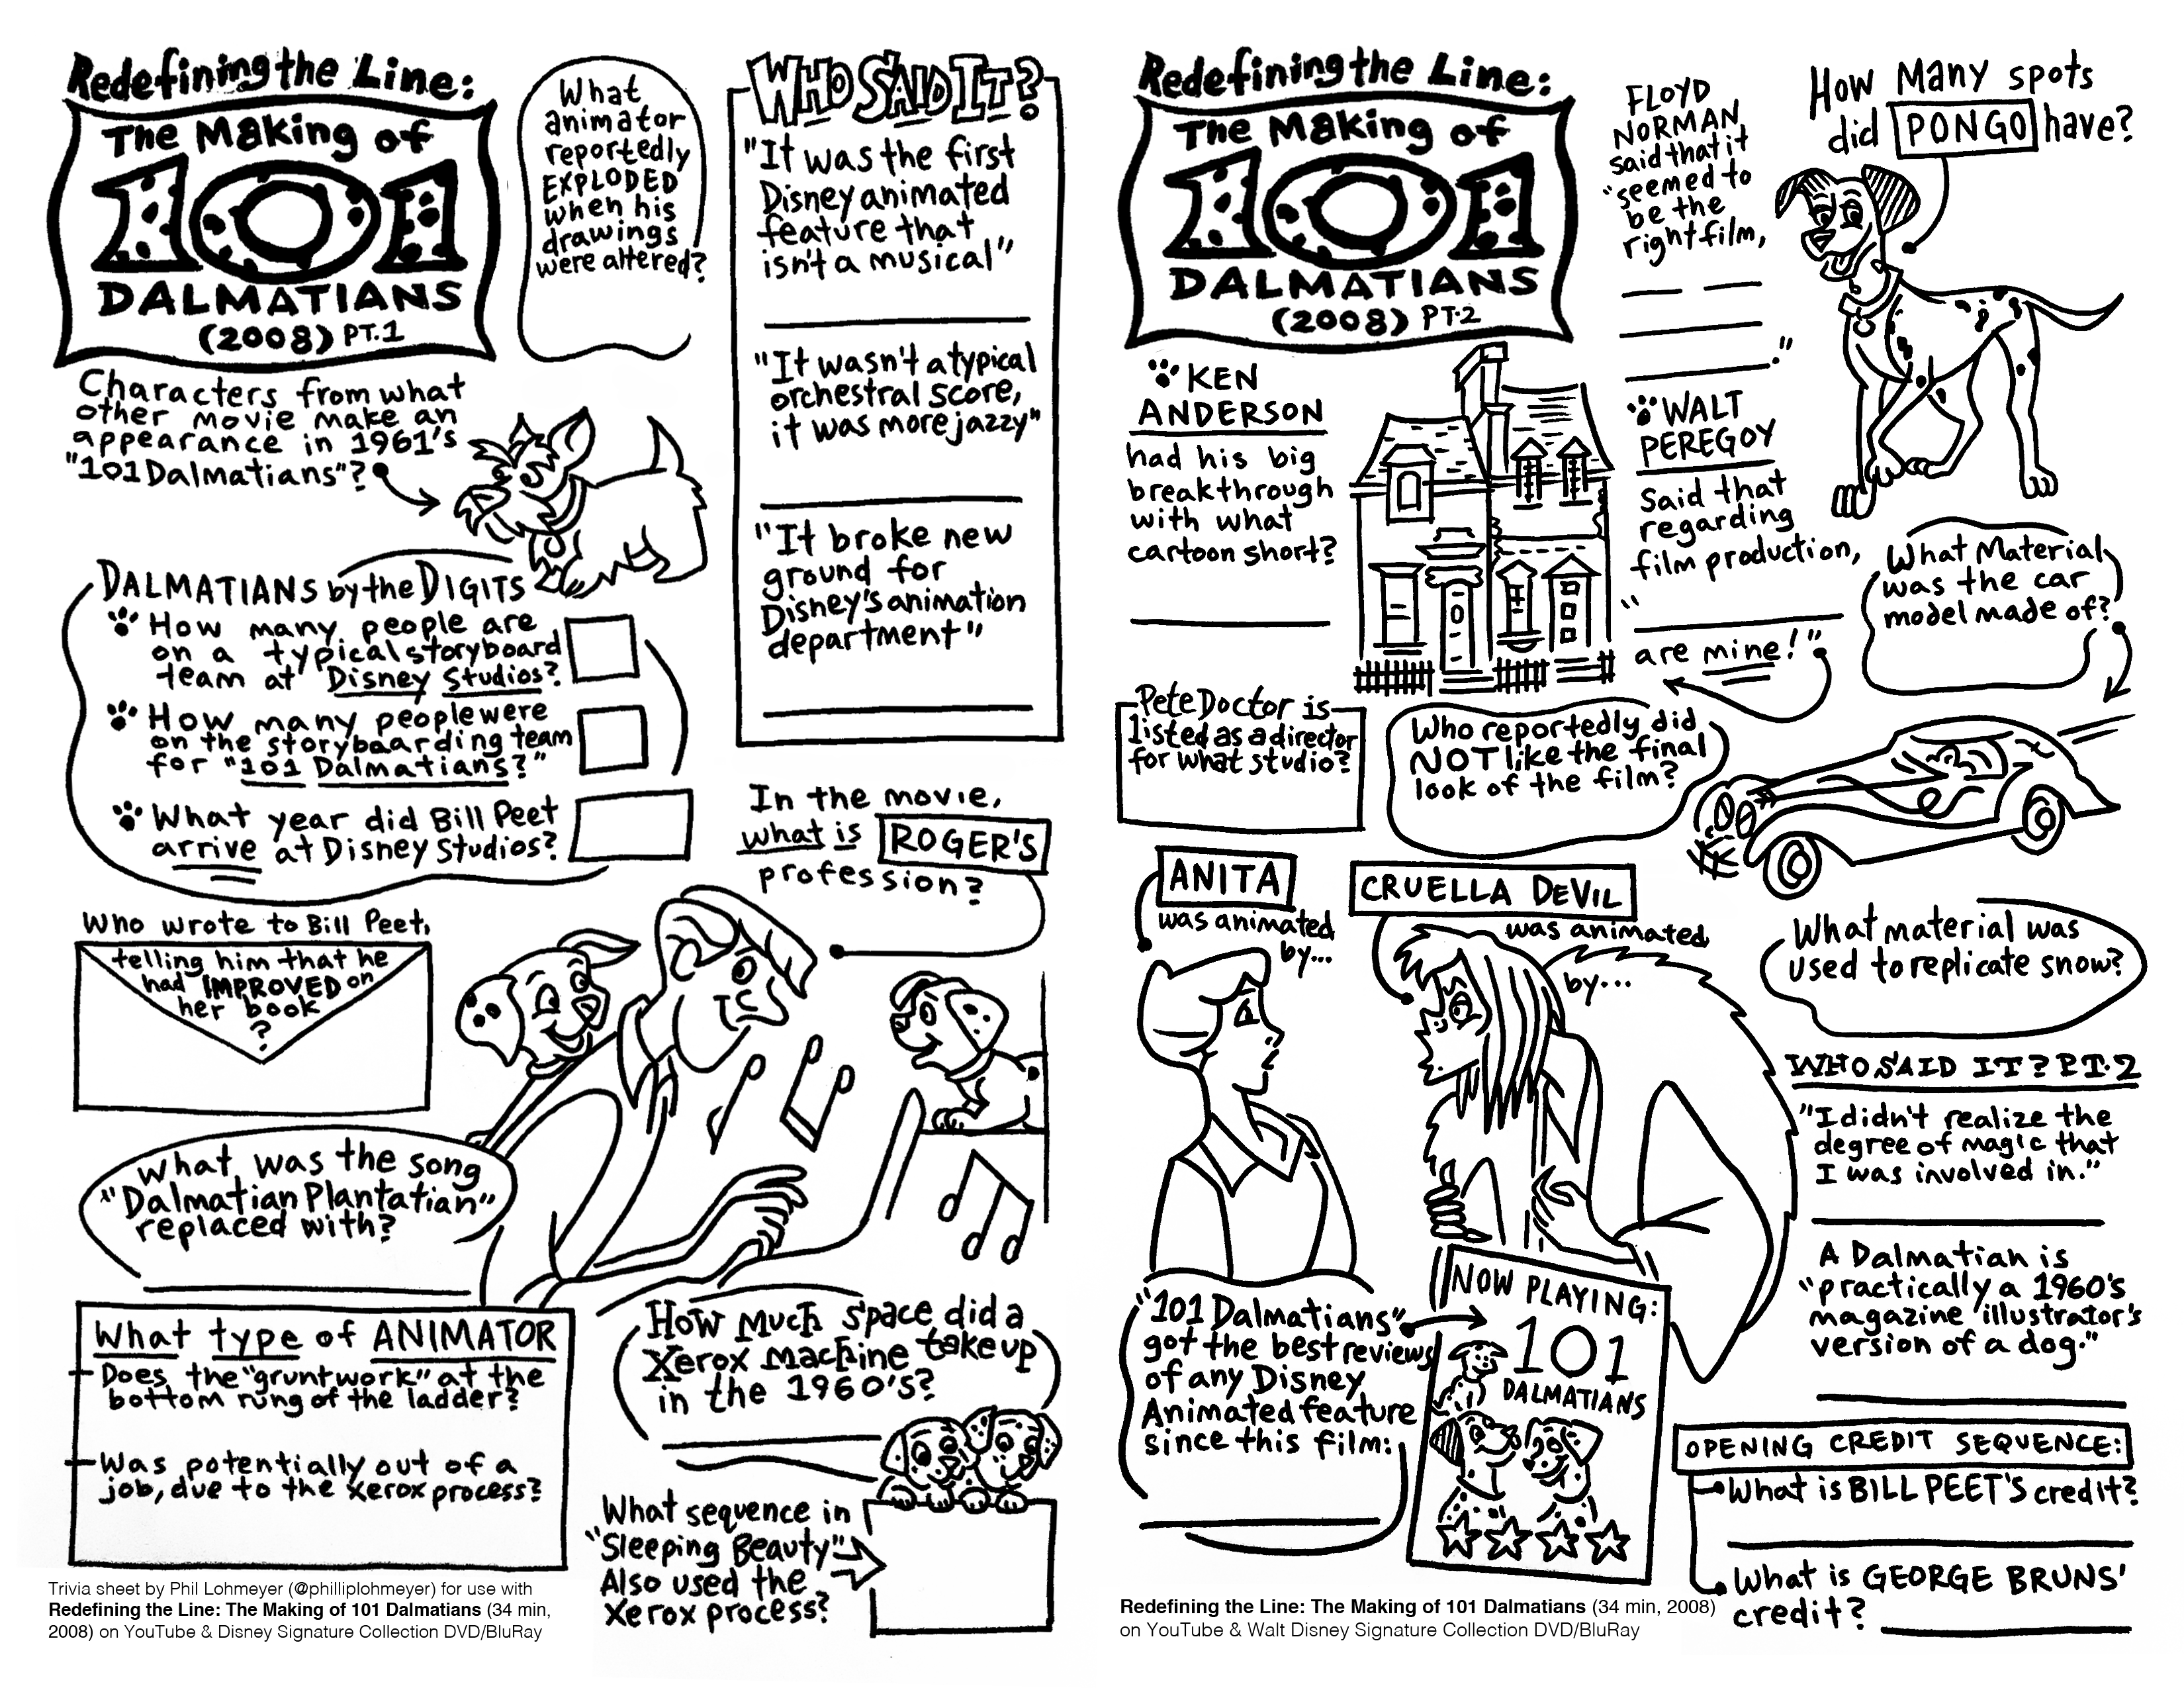 Redefining the Line:
The Making of
101
DALMATIANS
(2008) PT.1
What
animator
reportedly
EXPLODED
when his
drawings
were altered?
WHO SAID IT?
"It was the first
Disney animated
feature that
isn't a musical"
"It wasn't a typical
orchestral score,
it was more jazzy"
"It broke new
ground for
Disney's animation
department"
Characters from what
other movie make an
appearance in 1961's
"101 Dalmatians"?
DALMATIANS by the DIGITS
How many people are
on a typical storyboard
team at Disney Studios?
How many people were
on the storyboarding team
for "101 Dalmatians?"
What year did Bill Peet
arrive at Disney Studios?
In the movie,
what is ROGER'S
profession?
Who wrote to Bill Peet,
telling him that he
had IMPROVED on
her book
?
What was the song
"Dalmatian Plantatian"
replaced with?
What type of ANIMATOR
Does the "gruntwork" at the
bottom rung of the ladder?
Was potentially out of a
job, due to the Xerox process?
How Much space did a
Xerox Machine take up
in the 1960's?
What sequence in
"Sleeping Beauty"
Also used the
Xerox process?
Trivia sheet by Phil Lohmeyer (@philliplohmeyer) for use with
Redefining the Line: The Making of 101 Dalmatians (34 min,
2008) on YouTube & Disney Signature Collection DVD/BluRay
Redefining the Line:
The Making of
101
DALMATIANS
(2008) PT.2
FLOYD
NORMAN
said that it
"seemed to
be the
right film,
."
How Many spots
did PONGO have?
KEN
ANDERSON
had his big
breakthrough
with what
cartoon short?
WALT
PEREGOY
Said that
regarding
film production,
"
are mine!"
What Material
was the car
model made of?
Pete Doctor is
listed as a director
for what studio?
Who reportedly did
NOT like the final
look of the film?
ANITA
was animated
by...
CRUELLA DEVIL
was animated
by...
What material was
used to replicate snow?
WHO SAID IT? PT.2
"I didn't realize the
degree of magic that
I was involved in."
A Dalmatian is
"practically a 1960's
magazine illustrator's
version of a dog."
"101 Dalmatians"
got the best reviews
of any Disney
Animated feature
since this film:
NOW PLAYING:
101
DALMATIANS
OPENING CREDIT SEQUENCE:
What is BILL PEET'S credit?
What is GEORGE BRUNS'
credit?
Redefining the Line: The Making of 101 Dalmatians (34 min, 2008)
on YouTube & Walt Disney Signature Collection DVD/BluRay